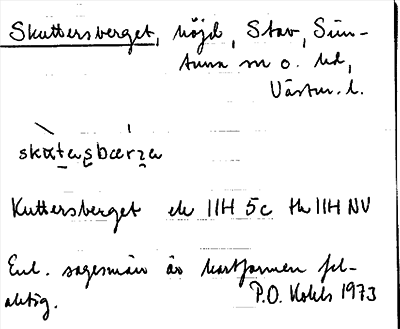 Skuttersberget, höjd, Stav, Simtuna sn o. hd,
Västm. l.
skɷta̱ṣbærẓa
Kuttersberget ek 11H 5c tk 11H NV
Enl. sagesmän är kartformen felaktig.
P.O. 1973